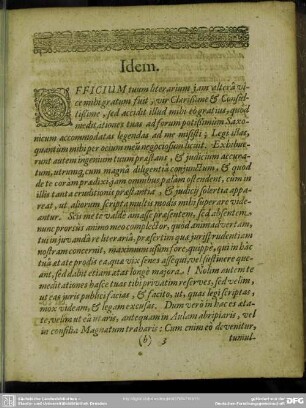 Idem.
OFFICIUM tuum literarium jam alterâ vi-
ce mihi gratum fuit, vir Clarissime & Consul-
tissime, sed accidit illud mihi eò gratius, quod
meditationes tuas ad forum potissimùm Saxo-
nicum accommodatas legendas ad me misisti; Legi illas,
quantùm mihi per otium meum negociosum licuit. Exhibue-
runt autem ingenium tuum præstans, & judicium accura-
tum, utrumq; cum magnâ diligentiâ conjunctum, & quod
de te coram prædixi, jam omnibus palàm ostendent, cum in
illis tanta eruditionis præstantia, & judicii solertia appa-
reat, ut aliorum scripta multis modis mihi superare vide-
antur. Scis me te valdè amâsse præsentem, sed absentem
nunc prorsus animo meo complector, quod animadvertam,
tui in juvandâ re literariâ, præsertim quâ jurisprudentiam
nostram concernit, maximum usum fore, quippe, qui in hâc
tuâ ætate prodis ea, quæ vix senes assequi, vel suscipere que-
ant, sed dabit etiam ætas longè majora. Nolim autem te
meditationes hasce tuas tibi privatim reserves, sed velim,
ut eas juris publici facias, & facito, ut, quas legi scriptas,
mox videam, & legam excusas. Dum verò in hac es æta-
te, velim ut eâ utaris, antequam in Aulam abripiaris, vel
in consilia Magnatum trabaris: Cum enim eò devenitur,
(b) 3
tumul-